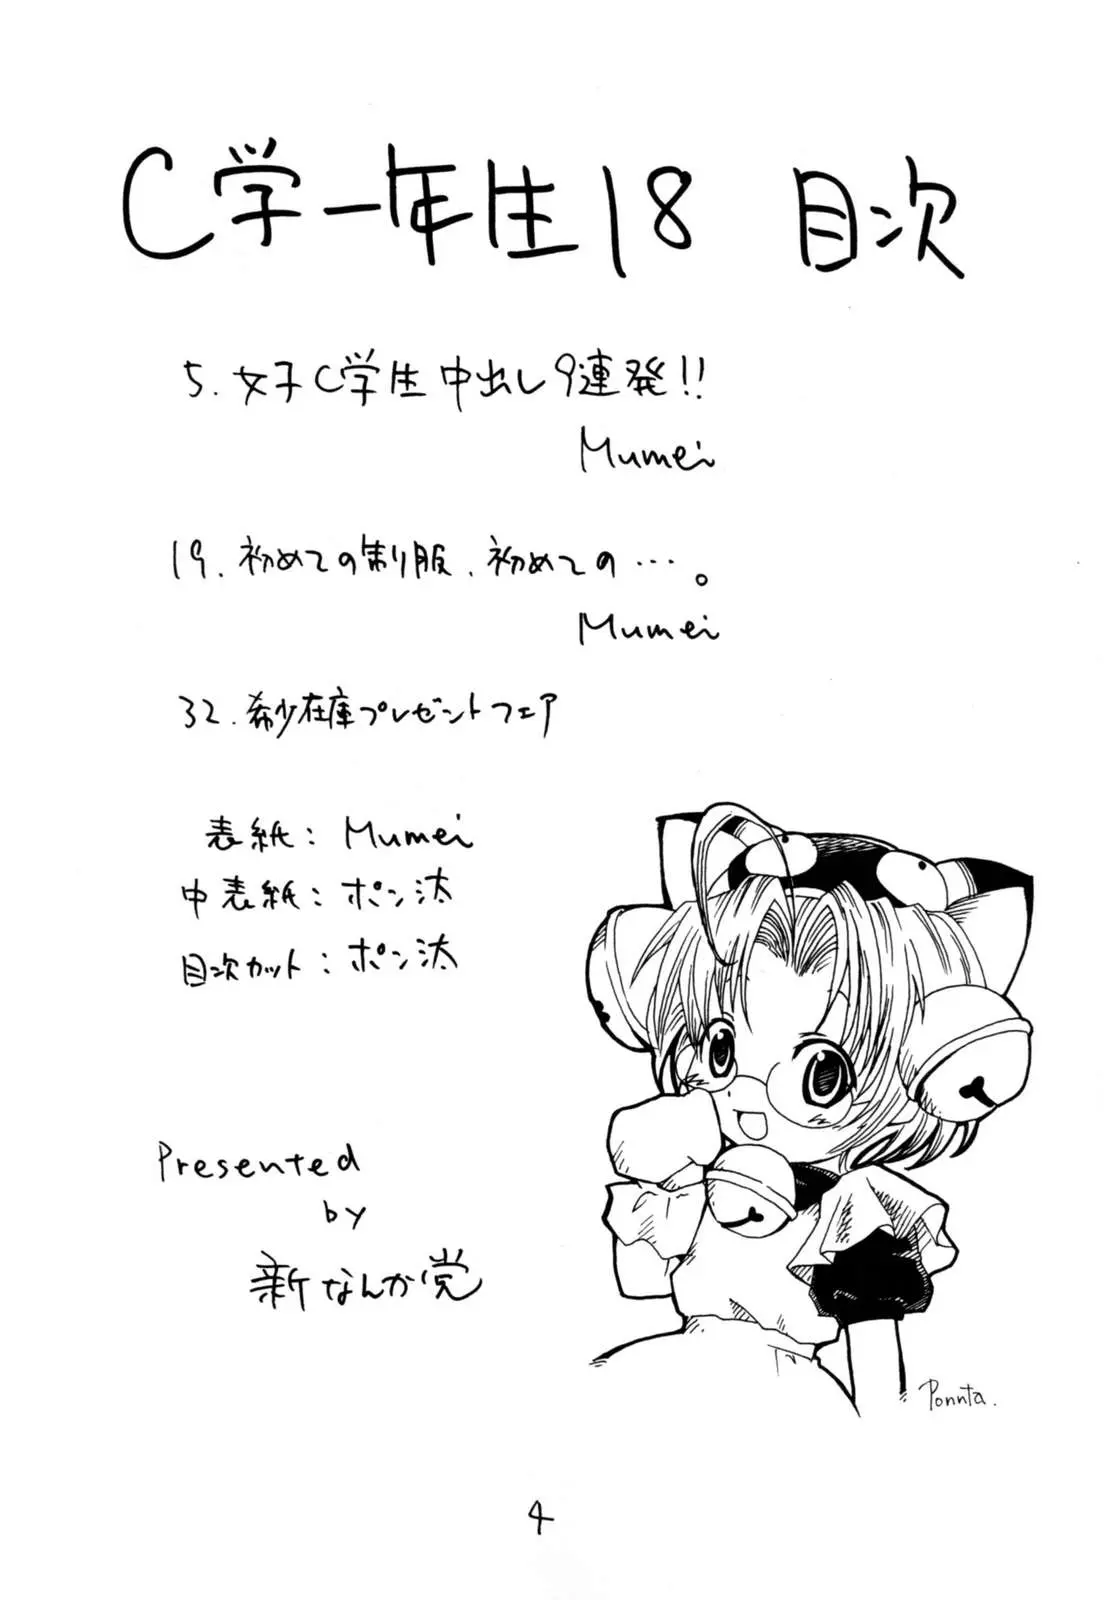 C学一年生18 目次
Mumei
19. 初めての制服、初めての…。
Mumei
32. 希少在庫プレゼントフェア
表紙: Mumei
中表紙: ポン汰
目次カット: ポン汰
Presented
by
新なんか党
Ponnta.
4